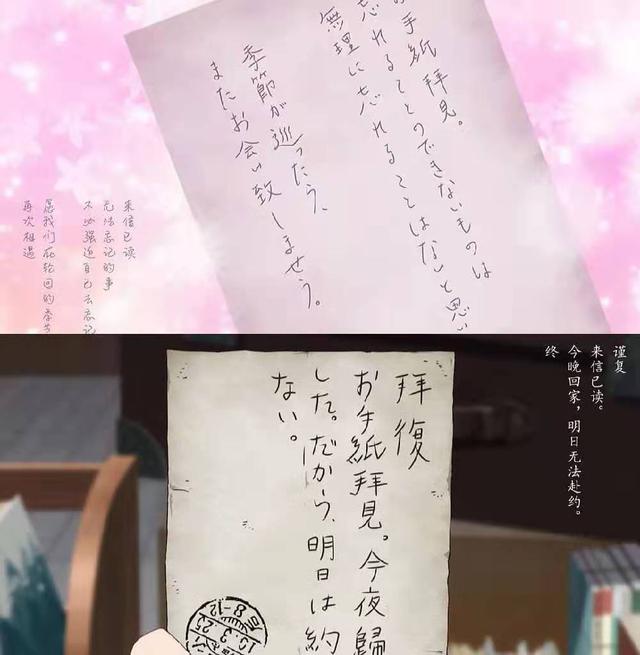 お手紙拝見。
忘れることのできないものは
無理に忘れることはないと思い
季節が巡ったら、
またお会い致しませう。
来信已读
无法忘记的事
不必强迫自己去忘记
愿我们在轮回的季节
再次相遇
谨复
来信已读。
今晚回家，明日无法赴约。
终
拝復
お手紙拝見。今夜歸
した。だから、明日は約
ない。